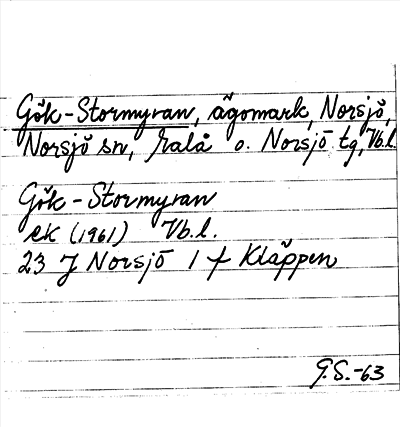 Gök-Stormyran, ägomark, Norsjö,
Norsjö sn, Malå o. Norsjö tg, Vb.l.
Gök-Stormyran
ek (1961) Vb.l.
23 J Norsjö 1 f Kläppen
G.S.-63